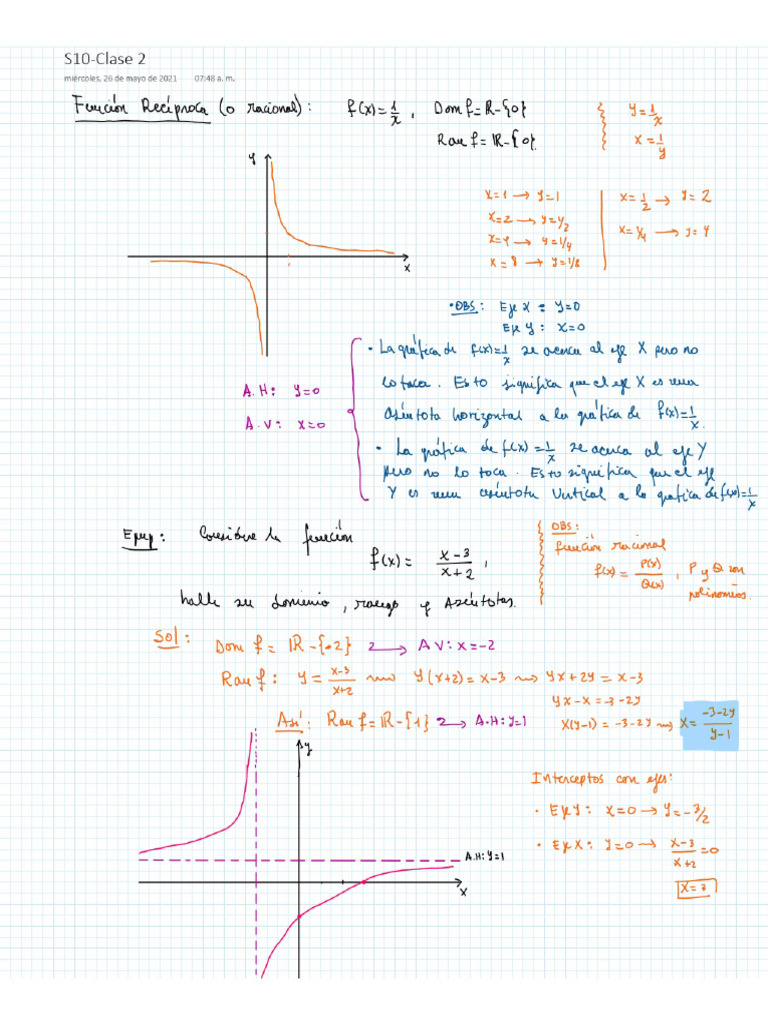 S10-Clase 2
miércoles, 26 de mayo de 2021 07:48 a. m.
Función Recíproca (o racional): f(x)=1/x , Dom f=ℝ-{0}
Ran f=ℝ-{0}.
y=1/x
x=1/y
y
x
x=1 → y=1
x=2 → y=1/2
x=4 → y=1/4
x=8 → y=1/8
x=1/2 → y=2
x=1/4 → y=4
• OBS: Eje X: y=0
Eje Y: x=0
A.H: y=0
A.V: x=0
• La gráfica de f(x)=1/x se acerca al eje X pero no
lo toca. Esto significa que el eje X es una
asíntota horizontal a la gráfica de f(x)=1/x.
• La gráfica de f(x)=1/x se acerca al eje Y
pero no lo toca. Esto significa que el eje
Y es una asíntota vertical a la gráfica de f(x)=1/x
Ejemp: Considere la función
f(x)= x-3/x+2 ,
halle su dominio, rango y Asíntotas.
OBS:
función racional
f(x)= P(x)/Q(x) , P y Q son
polinomios.
Sol: Dom f=ℝ-{-2} → A V: x=-2
Ran f: y= x-3/x+2 ⟿ y(x+2)=x-3 ⟿ yx+2y=x-3
yx-x=-3-2y
x(y-1)=-3-2y ⟿ x= -3-2y/y-1
Así: Ran f=ℝ-{1} → A.H: y=1
y
A.H: y=1
x
Interceptos con ejes:
• Eje Y: x=0 → y=-3/2
• Eje X: y=0 → x-3/x+2=0
x=3